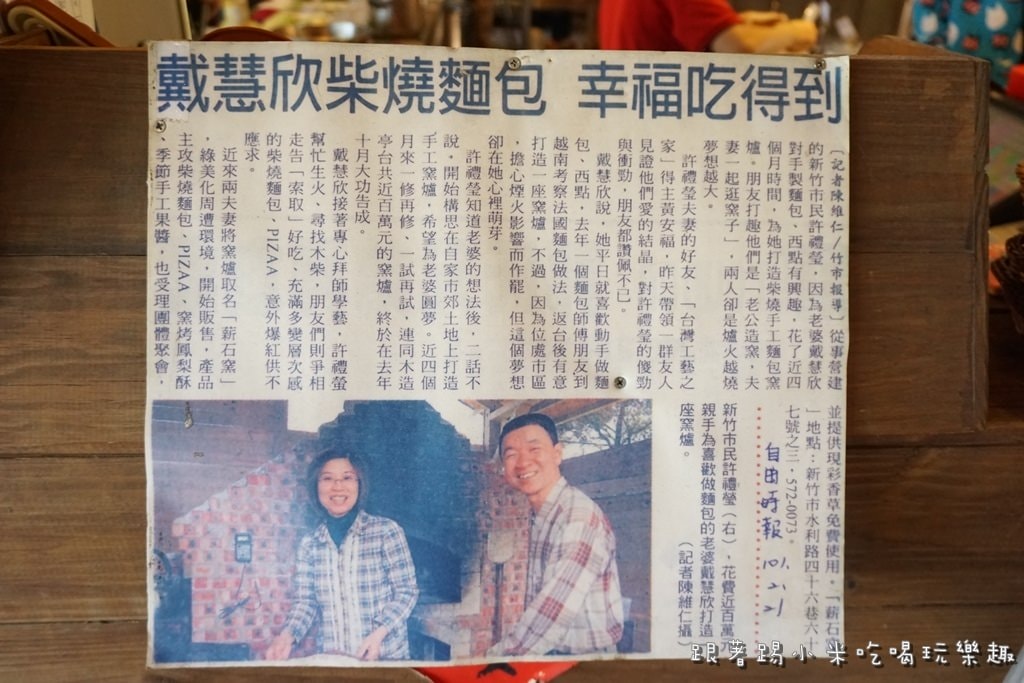 戴慧欣柴燒麵包 幸福吃得到
〔記者陳維仁/竹市報導〕從事營建
的新竹市民許禮瑩,因為老婆戴慧欣
對手製麵包、西點有興趣,花了近四
個月時間,為她打造柴燒手工麵包窯
爐。朋友打趣他們是「老公造窯,夫
妻一起逛窯子」,兩人卻是爐火越燒
夢想越大。
許禮瑩夫妻的好友、「台灣工藝之
家」得主黃安福,昨天帶領一群友人
見證他們愛的結晶,對許禮瑩的傻勁
與衝勁,朋友都讚佩不已。
戴慧欣說,她平日就喜歡動手做麵
包、西點,去年一個麵包師傅朋友到
越南考察法國麵包做法,返台後有意
打造一座窯爐,不過,因為位處市區
,擔心煙火影響而作罷,但這個夢想
卻在她心裡萌芽。
許禮瑩知道老婆的想法後,二話不
說,開始構思在自家市郊土地上打造
手工窯爐,希望為老婆圓夢。近四個
月來一修再修、一試再試,連同木造
亭台共近百萬元的窯爐,終於在去年
十月大功告成。
戴慧欣接著專心拜師學藝,許禮瑩
幫忙生火、尋找木柴,朋友們則爭相
走告「索取」好吃、充滿多變層次感
的柴燒麵包、PIZAA,意外爆紅供不
應求。
近來兩夫妻將窯爐取名「薪石窯」
,綠美化周遭環境,開始販售,產品
主攻柴燒麵包、PIZAA、窯烤鳳梨酥
、季節手工果醬,也受理團體聚會,
並提供現彩香草免費使用。「薪石窯
」地點:新竹市水利路四十六巷六十
七號之三,572-0073。
自由時報 101.2.21
新竹市民許禮瑩(右),花費近百萬元
親手為喜歡做麵包的老婆戴慧欣打造
座窯爐。 (記者陳維仁攝)
跟著踢小米吃喝玩樂趣